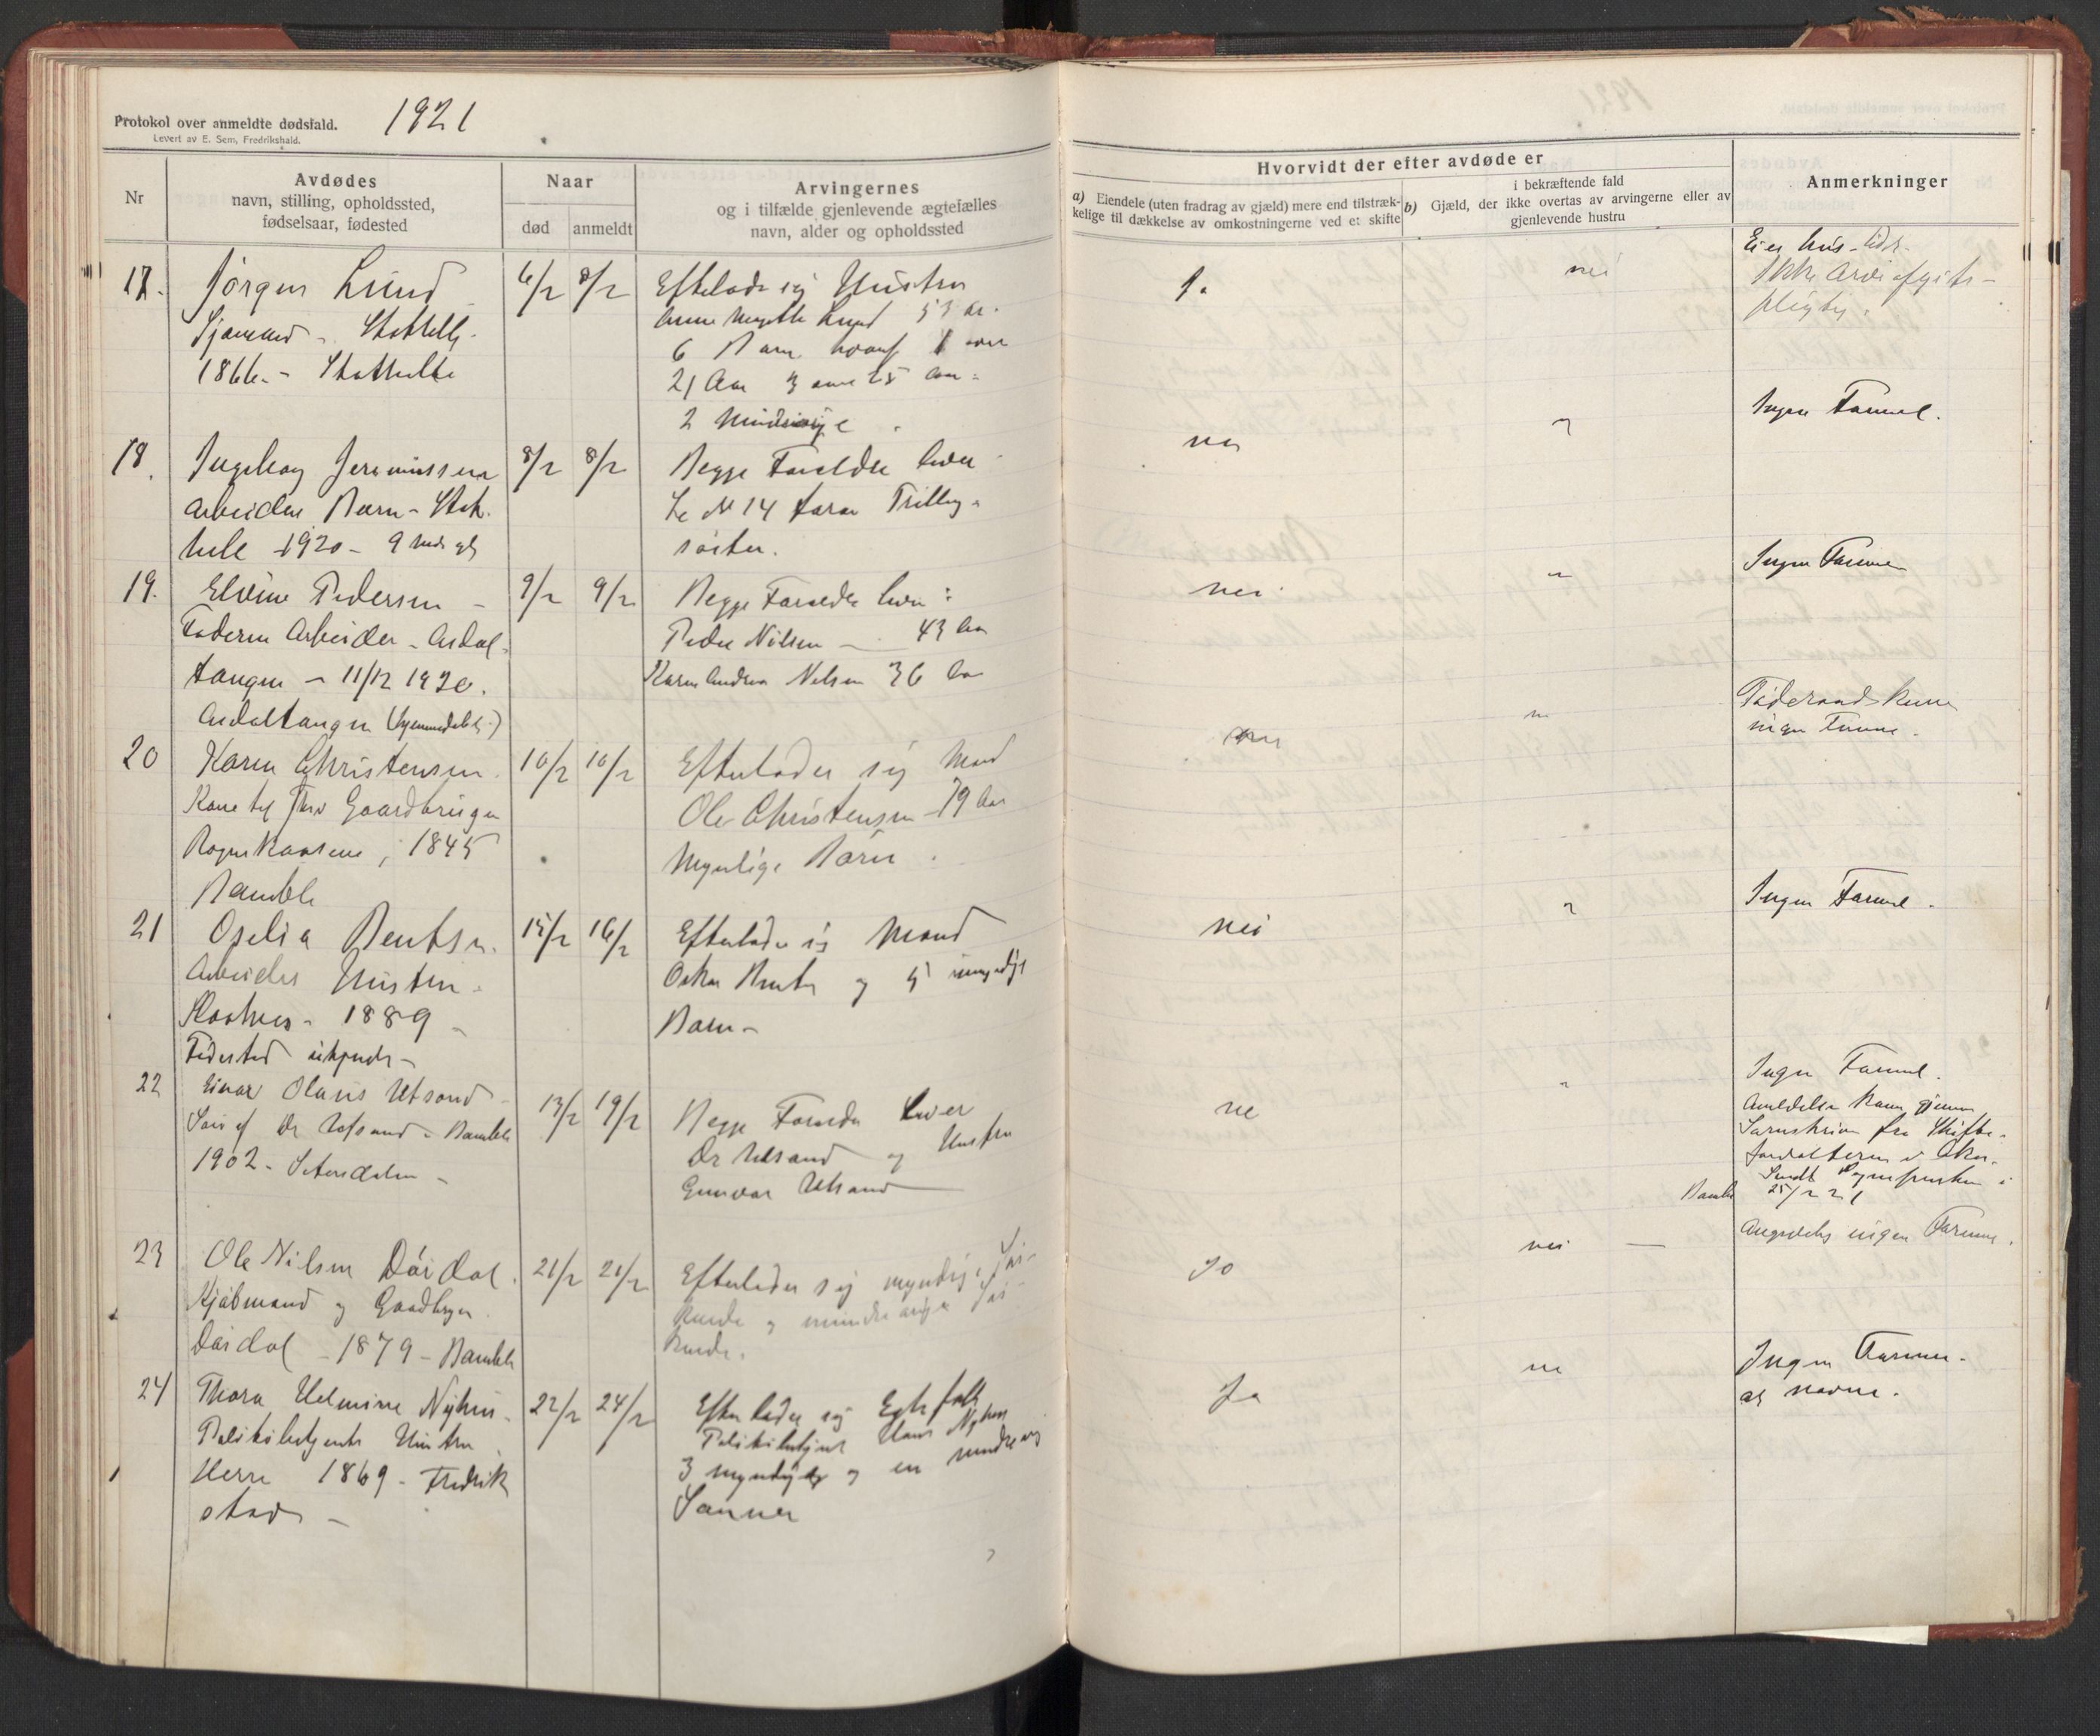 Protokol over anmeldte dødsfald. 1921
Levert av E. Sem, Fredrikshald.
Nr
Avdødes
navn, stilling, opholdssted,
fødselsaar, fødested
Naar
død anmeldt
Arvingernes
og i tilfælde gjenlevende ægtefælles
navn, alder og opholdssted
Hvorvidt der efter avdøde er
a) Eiendele (uten fradrag av gjæld) mere end tilstræk-
kelige til dækkelse av omkostningerne ved et skifte
i bekræftende fald
b) Gjæld, der ikke overtas av arvingerne eller av
gjenlevende hustru
Anmerkninger
17. Jørgen Lund 6/2 8/2 Efterlader sig Hustru
Sjømand - Stathelle
1866 - Stathelle
Lund 53 Aar
6 Barn hvoraf 1 over
21 Aar 3 over 25 Aar
2 Mindreaarige
Ja
nei
Eier hus
Ikke Arveafgifts-
pligtig.
18. Ingeborg Jeremiassen 8/2 8/2 Begge Forældre lever
Arbeider Barn - Stat-
helle 1920 - 9 Mdr gl
Se No 14 Tvilling-
søster.
nei
"
Ingen Formue.
19. Elvine Pedersen 9/2 9/2 Begge Forældre lever:
Faderen Arbeider - Asdal-
tangen - 11/12 1920.
Asdaltangen (hjemmedøbt)
Peder Nilsen - 43 Aar
Karen Andrea Nilsen 36 Aar
nei
"
Ingen Formue
20 Karen Christensen 10/2 10/2 Efterlader sig Mand
Kone til Gaardbruger
1845
Bamble
Ole Christensen 79 Aar
Myndige Børn.
nei
"
Føderaadskone
ingen Formue.
21 Ofelia Bentsen. 15/2 16/2 Efterlader sig Mand
Arbeider Hustru
1889
Fødested ukjendt
og 5 umyndige
Barn -
nei
"
Ingen Formue.
22 Einar Olaus Utsond 13/2 19/2 Begge Forældre lever
Søn af Dr Utsond - Bamble
1902 - Setesdalen -
Dr Utsand og Hustru
Gunvor Utsand
nei
"
Ingen Formue.
Anmeldelse kom gjennem
fra Skifte-
forvalteren i
Sendt i
Bamble 25/2 21
23 Ole Nilsen Dørdal. 21/2 21/2 Efterlader sig myndige Søs-
Kjøbmand og Gaardbruger
Dørdal - 1879 - Bamble
kende og mindreaarige Søs-
kende.
Jo
nei -
Angivelig ingen Formue.
24 Thora Helmine Nyhus 22/2 24/2 Efterlader sig Egtefælle
Politibetjents Hustru
Herre 1869 - Fredrik
stad -
Politibetjent Hans Nyhus
3 myndige og en mindreaarig
Sønner
Ja
nei
Ingen Formue
at nævne.